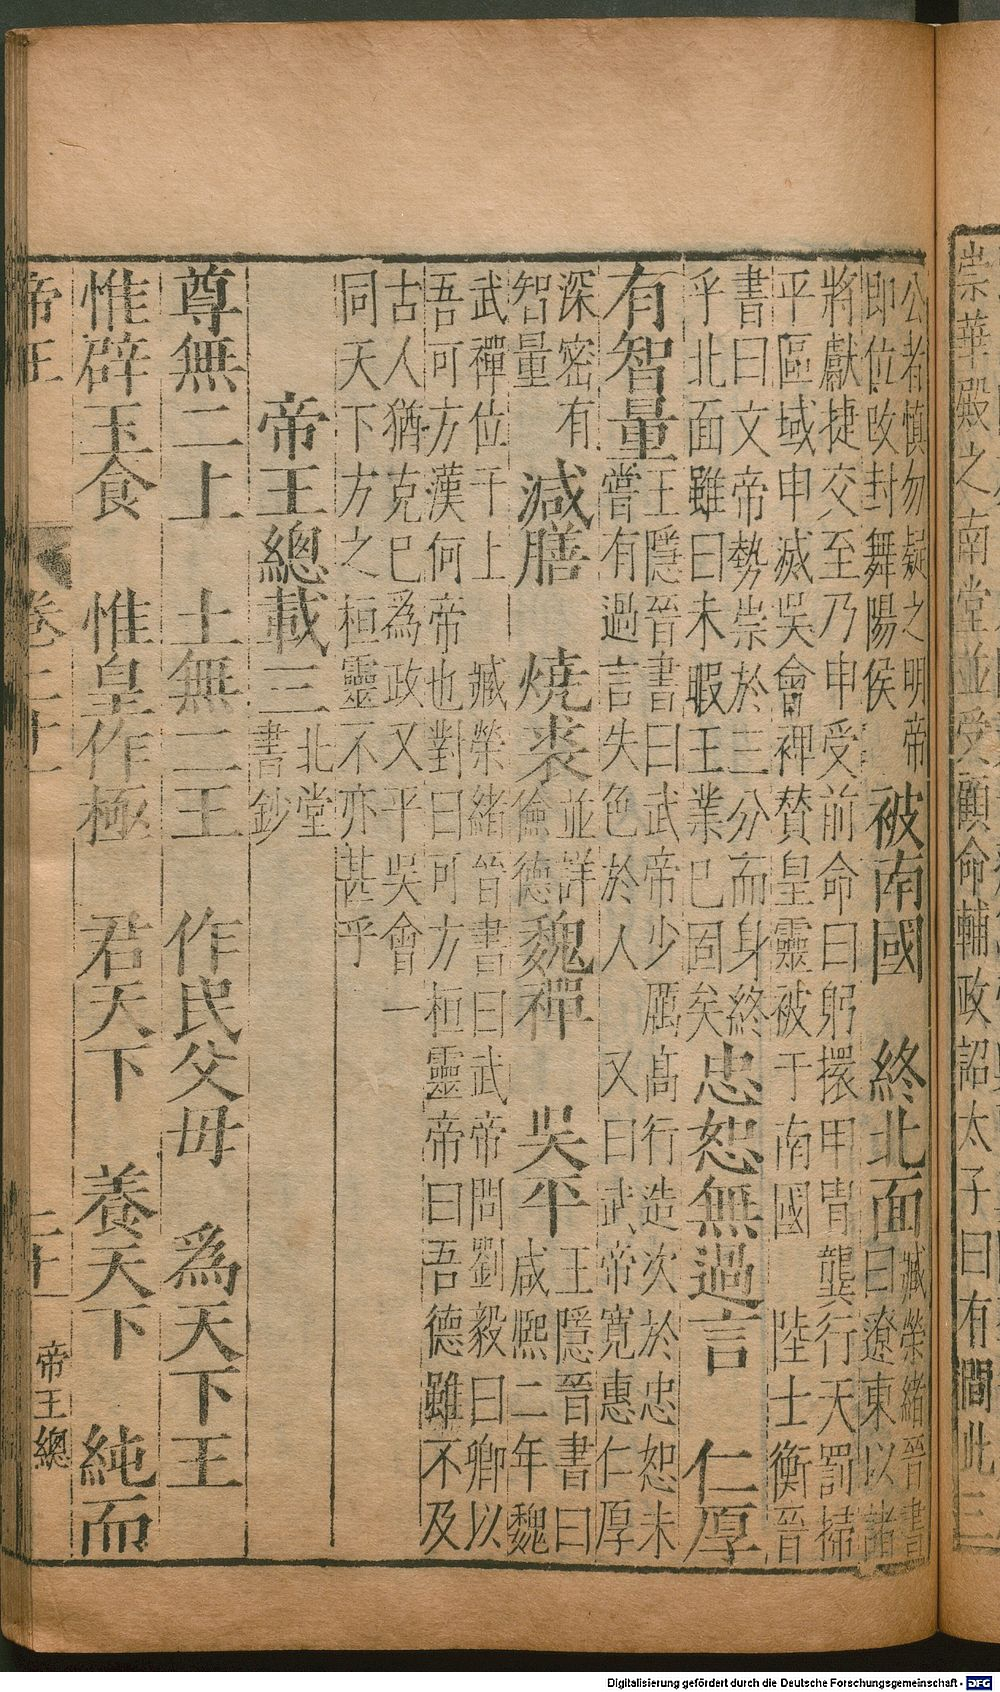 崇華殿之南堂並受顧命輔政詔太子曰有間此三
公者慎勿疑之明帝 臧榮緒晉書
即位改封舞陽侯 被南國 終北面 曰遼東以諸
將獻捷交至乃申受前命曰躬擐甲冑龔行天罰掃
平區域申滅吳會裨贊皇靈被于南國 陸士衡晉
書曰文帝勢崇於三分而身終
乎北面雖曰未暇王業已固矣 忠恕無過言 仁厚
有智量 王隱晉書曰武帝少厲高行造次於忠恕未
嘗有過言失色於人 又曰武帝寬惠仁厚
深密有
智量 減膳 燒裘 並詳儉德 魏禪 吳平 王隱晉書曰
咸熈二年魏
武禪位于上 臧榮緒晉書曰武帝問劉毅曰卿以
吾可方漢何帝也對曰可方桓靈帝曰吾德雖不及
古人猶克己為政又平吳會一
同天下方之桓靈不亦甚乎
帝王總載三 北堂書鈔
尊無二上 土無二王 作民父母 為天下王
惟辟玉食 惟皇作極 君天下 養天下 純而
帝王 卷二十一 二十一 帝王總
Digitalisierung gefördert durch die Deutsche Forschungsgemeinschaft - DFG